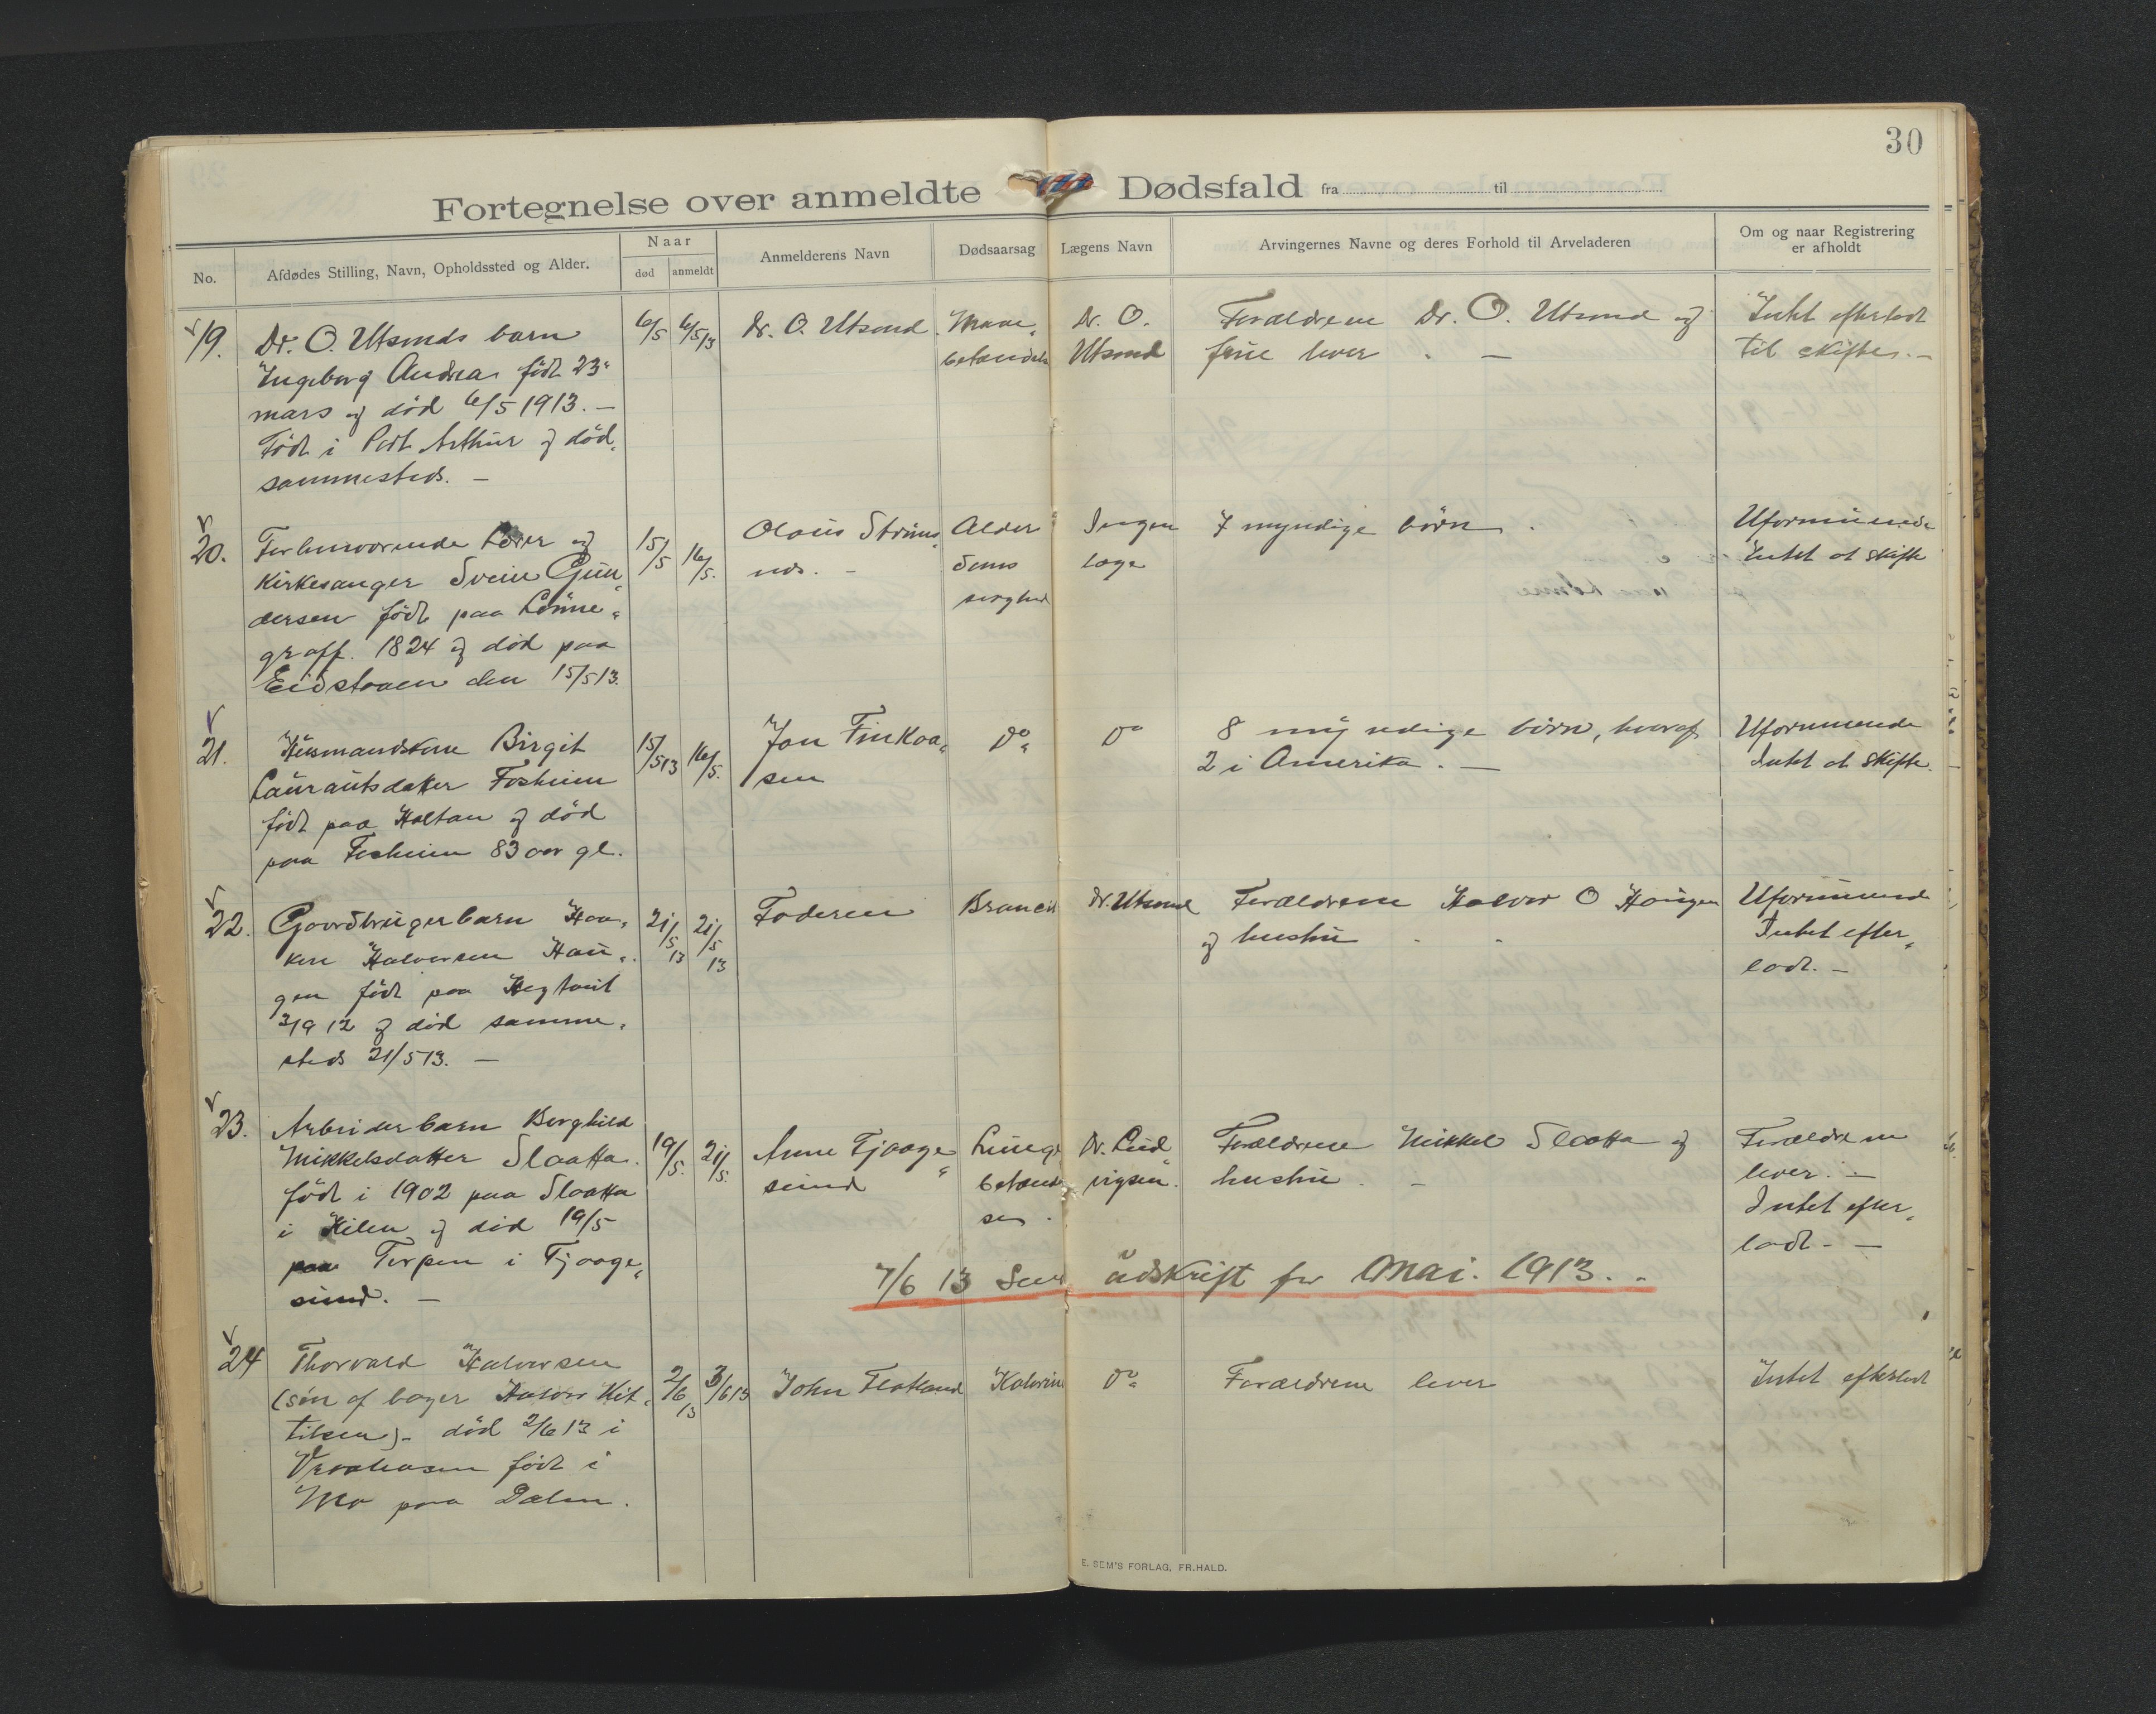 30
Fortegnelse over anmeldte Dødsfald fra til
No.
Afdødes Stilling, Navn, Opholdssted og Alder.
Naar
død
anmeldt
Anmelderens Navn
Dødsaarsag
Lægens Navn
Arvingernes Navne og deres Forhold til Arveladeren
Om og naar Registrering
er afholdt
19.
Dr. O. Utsonds barn
Ingeborg Andrea født 23
mars og død 6/5 1913. —
Født i Port Arthur og død
sammesteds. —
6/5
6/5 13
Dr. O. Utsond
Mave
betændelse
Dr. O.
Utsond
Forældrene Dr. O. Utsond og
frue lever. —
Intet efterladt
til skifte. —
20.
Forhenværende Lærer og
Kirkesanger Svein Gun
dersen født paa Lønne
graff. 1824 og død paa
Eidstaaen den 15/5 13.
15/5
16/5.
Olaus Strøms
nds. —
Alder
doms
svaghed
Ingen
læge
7 myndige børn.
Uformuende
Intet at skifte
21.
Husmandskone Birgit
Laurantsdatter Fosheim
født paa Haltan og død
paa Fosheim 83 aar gl.
15/5 13
16/5.
Jon Finkoa
sen
Do
Do
8 myndige børn, hvoraf
2 i Amerika. —
Uformuende
Intet at skifte.
22.
Gaardbrugerbarn Haa
kon Halvorsen Hau
gen født paa Hegtveit
3/9 12 og død samme
steds 21/5 13. —
21/5 13
21/5 13
Faderen
Bronchit
Dr. Utsond
Forældrene Halvor O Haugen
og hustru
Uformuende
Intet efter
ladt. —
23.
Arbeiderbarn Borghild
Mikkelsdatter Slaatta.
født i 1902 paa Slaatta
i Kilen og død 19/5
paa Torpen i Fjaage
sund. —
19/5.
21/5.
Anne Fjaage
sund
Lunge
betænd
se.
Dr. Lud
vigsen.
Forældrene Mikkel Slaatta og
hustru. —
Forældrene
lever. —
Intet efter
ladt. —
7/6 13 Sendt udskrift for Mai. 1913..
24
Thorvald Halvorsen
(søn af bager Halvor Kit
tilsen). død 2/6 13 i
Vraaliosen født i
Mo paa Dalen.
2/6 13
3/6 13
John Flatland
Kolerine
Do
Forældrene lever
Intet efterladt
E. SEM'S FORLAG, FR.HALD.